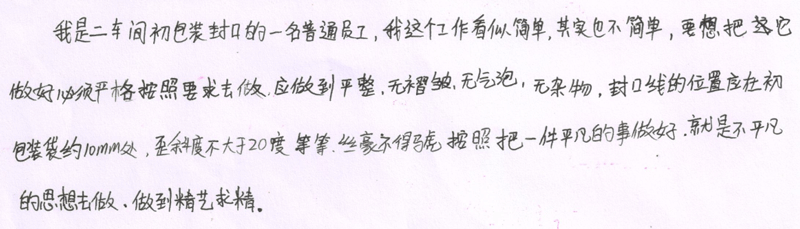 我是二车间初包装封口的一名普通员工,我这个工作看似简单,其实也不简单,要想把它
做好必须严格按照要求去做,应做到平整、无褶皱、无气泡,无杂物,封口线的位置应在初
包装袋约10mm处,歪斜度不大于20度等等.丝豪不得马虎按照把一件平凡的事做好.就是不平凡
的思想去做、做到精艺求精。